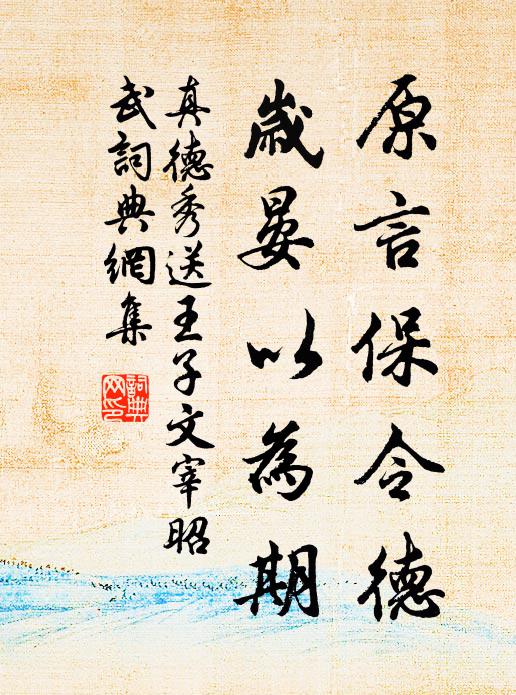 原言保令德
歲晏以為期
真德秀送王子文宰昭
武詞典網集
詞典
网印